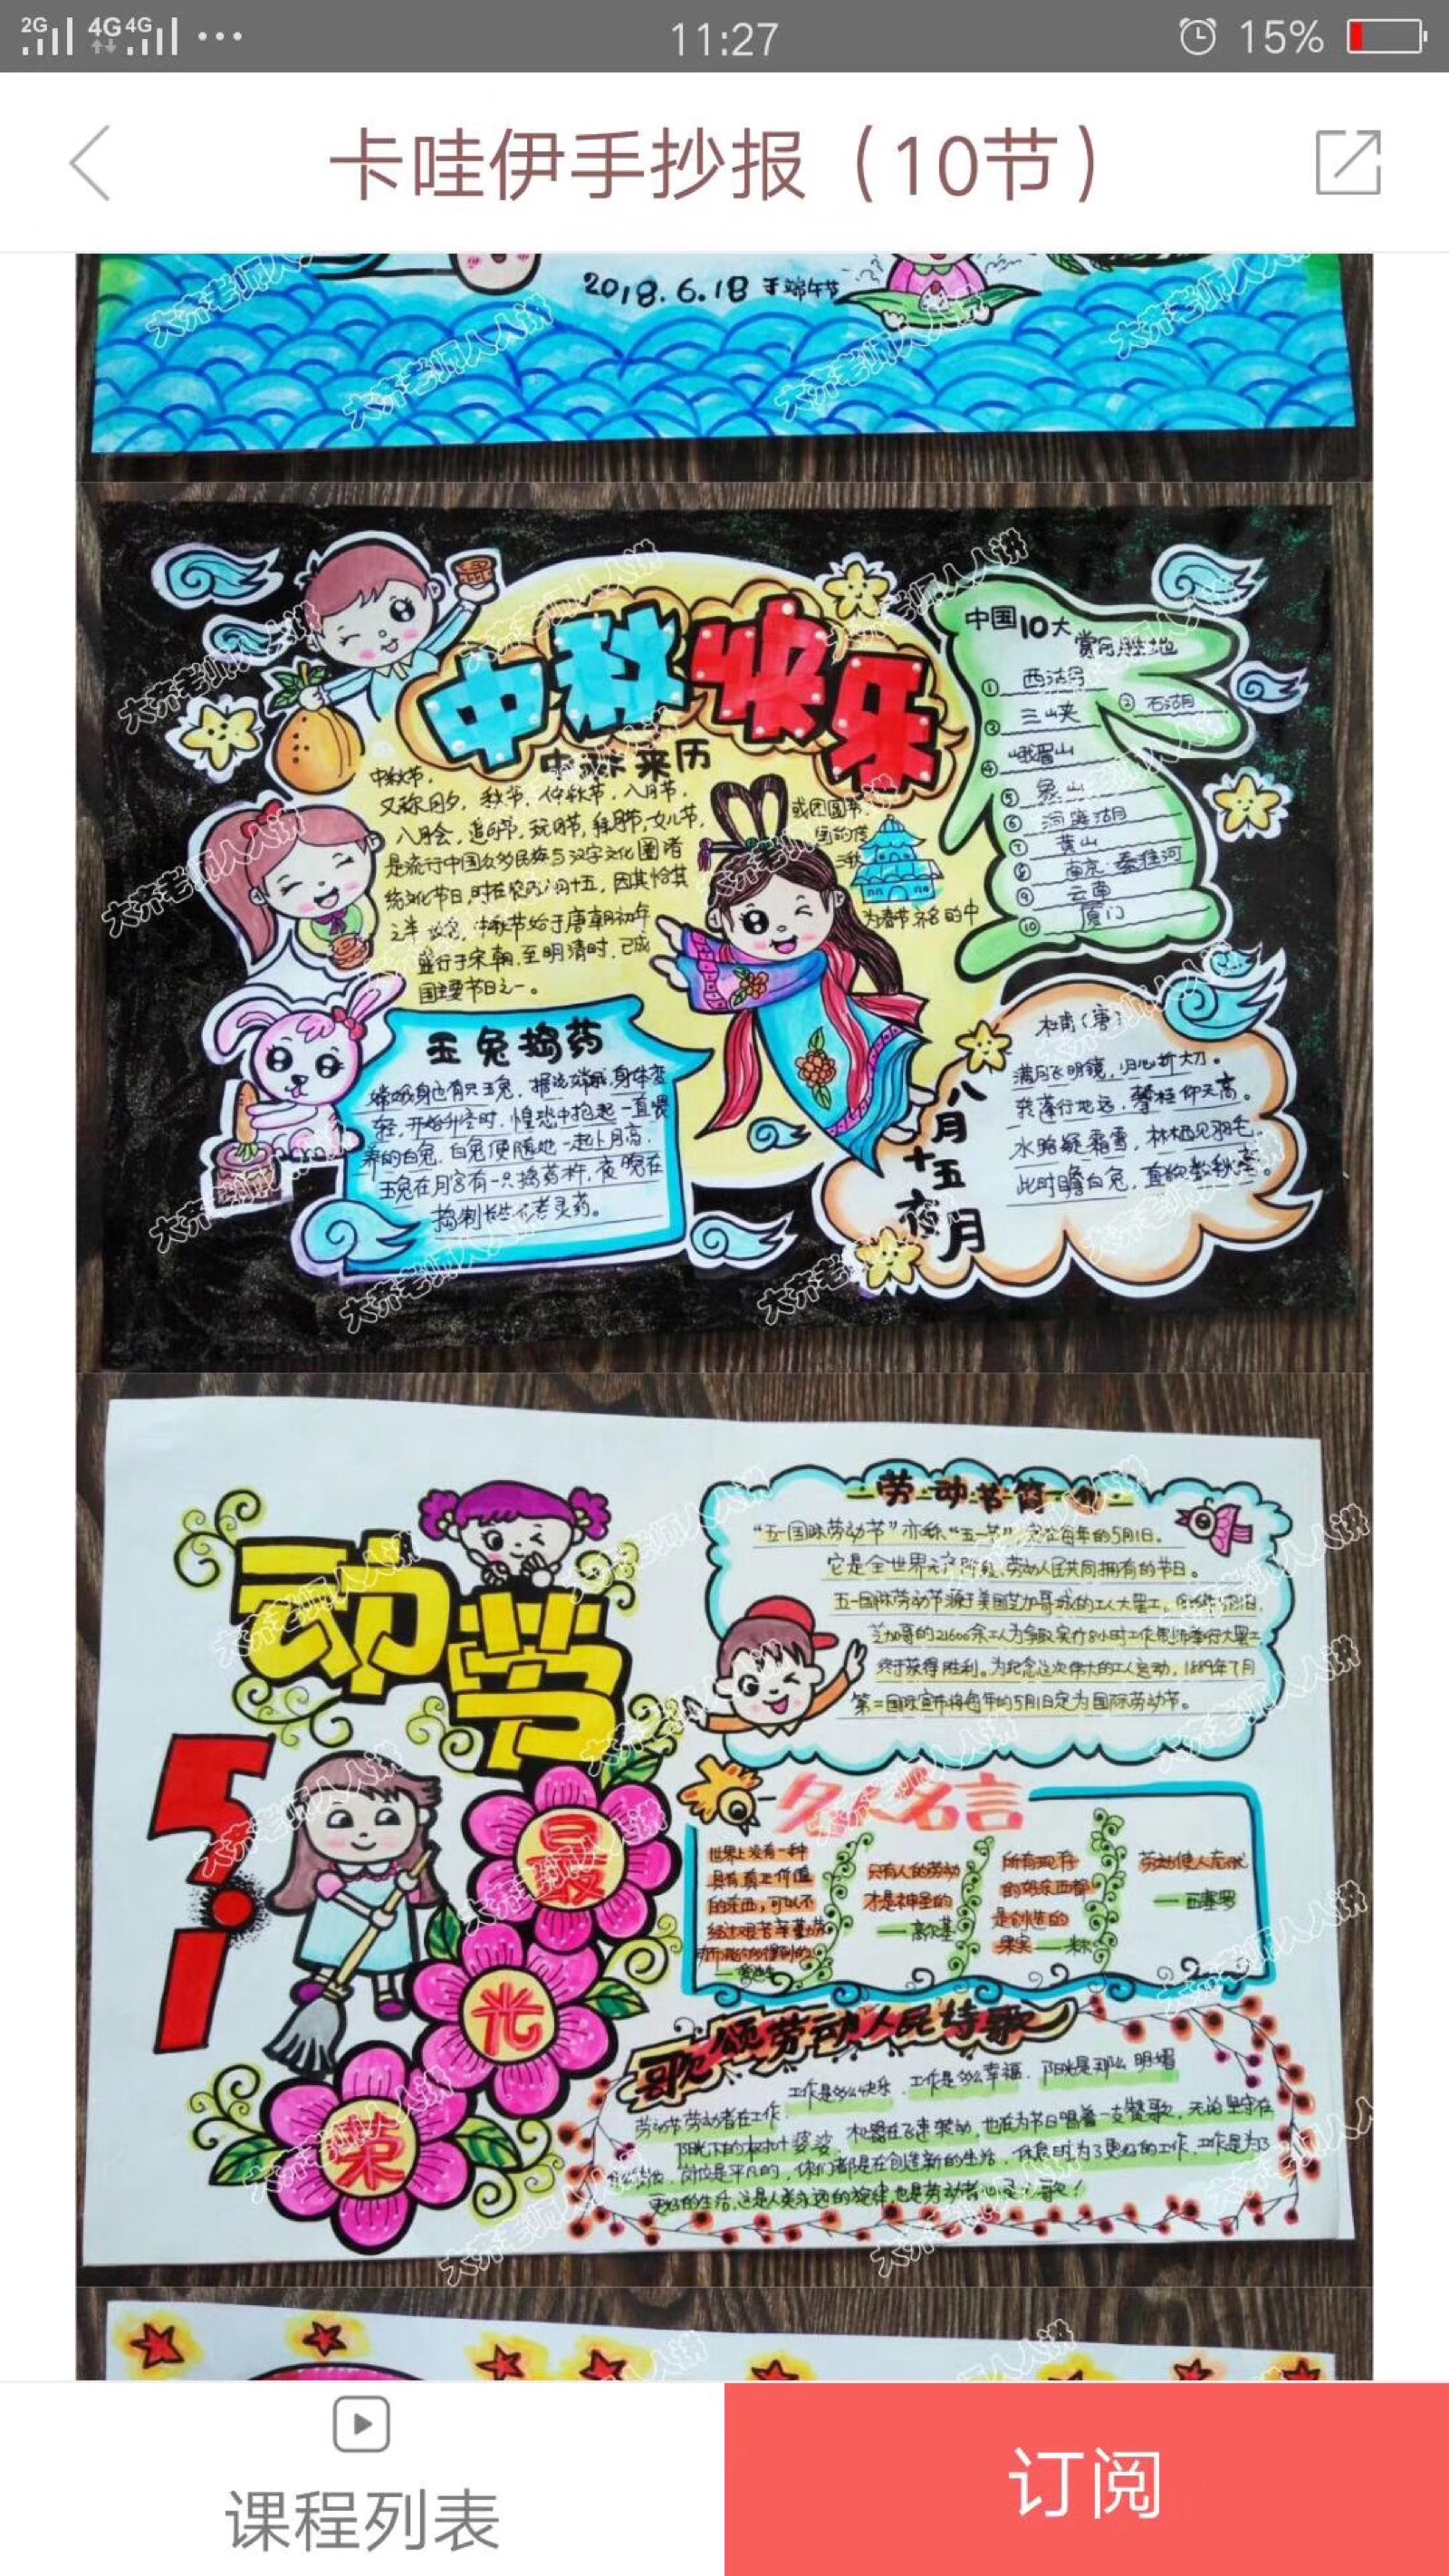 2G 4G 4G
11:27
15%
卡哇伊手抄报（10节）
2018.6.18 于端午节
中秋快乐
中秋来历
中秋节，
又称月夕，秋节，仲秋节，八月节，
八月会，追月节，玩月节，拜月节，女儿节，
或团圆节，
是流行中国众多民族与汉字文化圈诸
国的传
统文化节日，时在农历八月十五，因其恰其
三秋
之半，故名，中秋节始于唐朝初年
盛行于宋朝，至明清时，已成
为春节齐名的中
国主要节日之一。
中国10大
赏月胜地
① 西湖
② 三峡
③ 石湖
④ 峨眉山
⑤ 象山
⑥ 洞庭湖
⑦ 黄山
⑧ 南京 秦淮河
⑨ 云南
⑩ 厦门
玉兔捣药
嫦娥身也有只玉兔，据说嫦娥身体变
轻，开始升空时，惶恐中抱起一直喂
养的白兔，白兔便随她一起上月亮，
玉兔在月宫有一只捣药杵，夜晚在
捣制长生不老灵药。
八月十五夜月
杜甫（唐）
满月飞明镜，归心折大刀。
转蓬行地远，攀桂仰天高。
水路疑霜雪，林栖见羽毛。
此时瞻白兔，直欲数秋毫。
劳动节简介
“五一国际劳动节”亦称“五一节”，定在每年的5月1日。
它是全世界无产阶级、劳动人民共同拥有的节日。
五一国际劳动节源于美国芝加哥城的工人大罢工，
芝加哥的21600余工人为争取实行8小时工作制而举行大罢工
终于获得胜利。为纪念这次伟大的工人运动，1889年7月
第二国际宣布将每年的5月1日定为国际劳动节。
动节
5.1
最
光
荣
名人名言
世界上没有一种
具有真正价值
的东西，可以不
经过艰苦辛勤劳
动而能够得到的
只有人的劳动
才是神圣的
——高尔基
所有现存
的好东西都
是创造的
果实
劳动使人忘忧
——西塞罗
歌颂劳动人民诗歌
工作是多么快乐，工作是多么幸福，阳光是那么明媚
劳动节劳动者在工作，
阳光下的树叶婆娑，机器在飞速转动，也在为节日唱着一支赞歌，无论坚守在
岗位是平凡的，你们都是在创造新的生活，休息时为了更好的工作，工作是为了
更好的生活，这是人类永远的旋律，也是劳动者心灵的歌！
大齐老师人人讲
课程列表
订阅